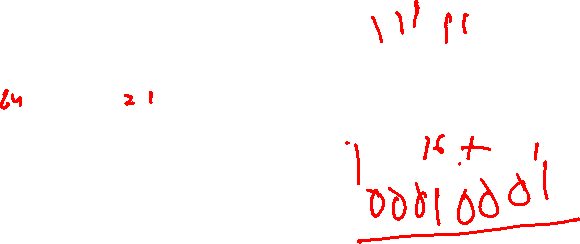 11111
64 21
1 16 + 1
00010001